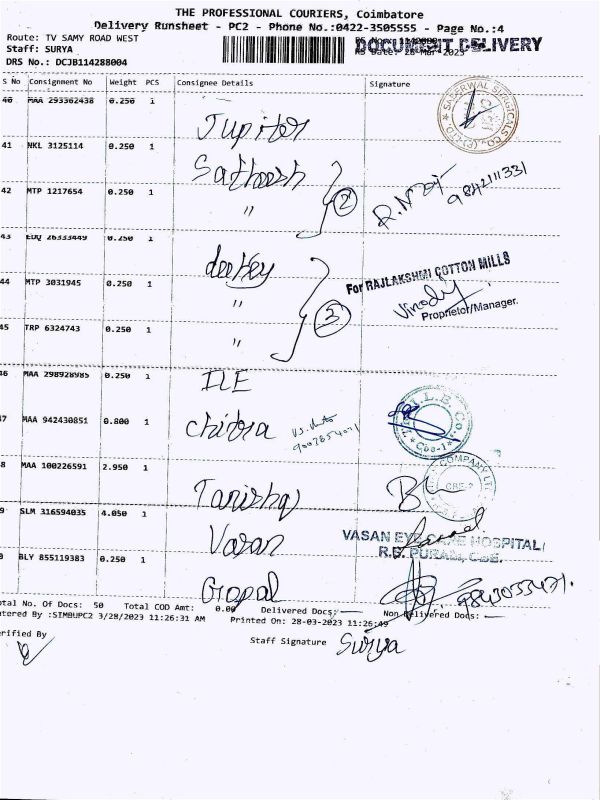 THE PROFESSIONAL COURIERS, Coimbatore
Delivery Runsheet - PC2 - Phone No.:0422-3505555 - Page No.:4
Route: TV SAMY ROAD WEST
DOCUMENT DELIVERY
Staff: SURYA
RS Date: 28-Mar-2023
DRS No.: DCJB114288004
S No Consignment No Weight PCS Consignee Details Signature
40 MAA 293362438 0.250 1 Jupiter
41 NKL 3125114 0.250 1 Satheesh
42 MTP 1217654 0.250 1 " 2
9842111331
43 EDQ 26333449 0.250 1
44 MTP 3031945 0.250 1 " 3
For RAJLAKSHMI COTTON MILLS
Proprietor/Manager.
45 TRP 6324743 0.250 1 "
46 MAA 298928985 0.250 1 ILE
47 MAA 942430851 0.800 1 Chitra
8 MAA 100226591 2.950 1 Tanishq
9 SLM 316594035 4.050 1 Vasan
VASAN EYE CARE HOSPITAL
R.S. PURAM, CBE.
0 BLY 855119383 0.250 1 Gopal
9843055471.
otal No. Of Docs: 50 Total COD Amt: 0.00 Delivered Docs: — Non Delivered Docs: —
ntered By :SIMBUPC2 3/28/2023 11:26:31 AM Printed On: 28-03-2023 11:26:49
erified By Staff Signature Surya